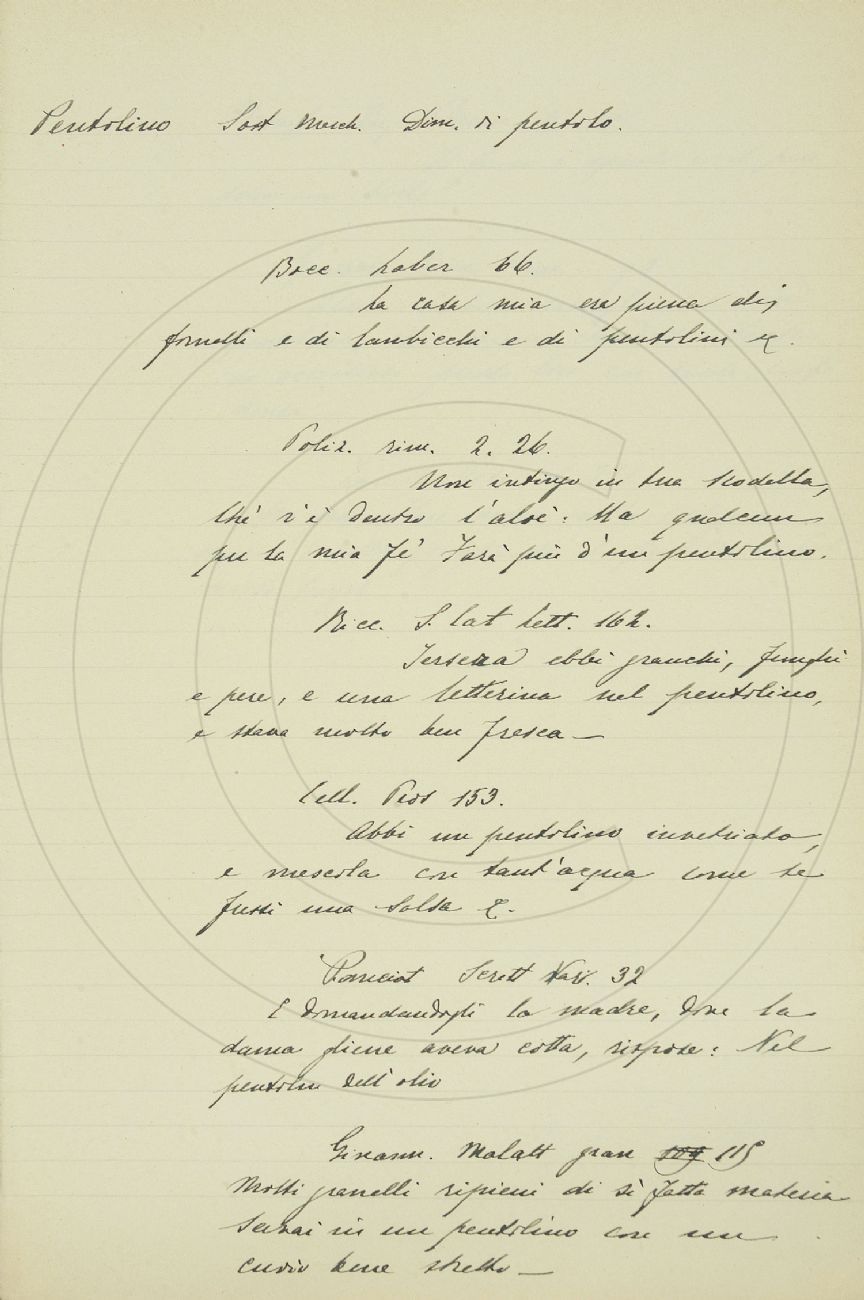 Pentolino Sost. Masch. Dim. di pentolo.
Bocc. Laber 66.
La casa mia era piena di
fornelli e di lambicchi e di pentolini &.
Poliz. rim. 2. 26.
Non intingo in tua scodella,
Chè v'è dentro l'aloè: Ma qualcun
per la mia fè Farà più d'un pentolino.
S. Lat Lett. 162.
Iersera ebbi granchi, funghi
e pere, e una letterina nel pentolino,
e stava molto ben fresca —
Cell. Pros 153.
Abbi un pentolino invetriato,
e mescola con tant'acqua come se
fussi una salsa &.
Panciat Scritt Var. 32
E domandandogli la madre, dove la
dama gliene aveva cotta, rispose: Nel
dell'olio
Giovann. Malatt gran 109 115
Molti granelli ripieni di sì fatta materia
Serrai in un pentolino con un
cuoio bene stretto —